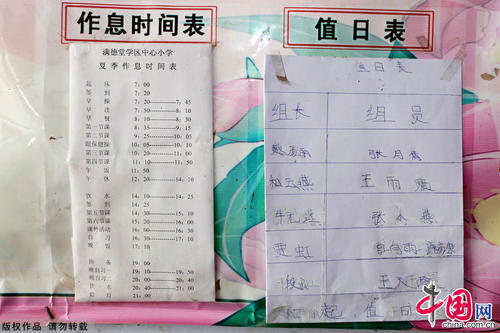 作息时间表
满德堂学区中心小学
夏季作息时间表
起 床 7: 00
签 到 7: 20
早 操 7: 20——7: 45
早 读 7: 50——8: 10
早 餐 8: 10——8: 30
第一节课 8: 35——9: 15
第二节课 9: 25——10: 05
眼保健操 10: 05——10: 10
第三节课 10: 20——11: 00
第四节课 11: 10——11: 50
午 饭 11: 50
午 休 12: 20——14: 10
饮 水 14: 10——14: 25
签 到 14: 25
第五节课 14: 30——15: 10
第六节课 15: 20——16: 00
课外活动 16: 10——16: 50
自 习 16: 50——17: 10
晚 饭 17: 10
预 备 19: 00
晚自习一 19: 10——19: 50
晚自习二 20: 00——20: 40
饮 水 20: 40——21: 00
熄 灯 21: 00
值日表
值日表
组长 组员
张月
祖云燕 王雨震
张小燕
贾虹
王
一起值日
版权作品 请勿转载
中国网
www.china.com.cn